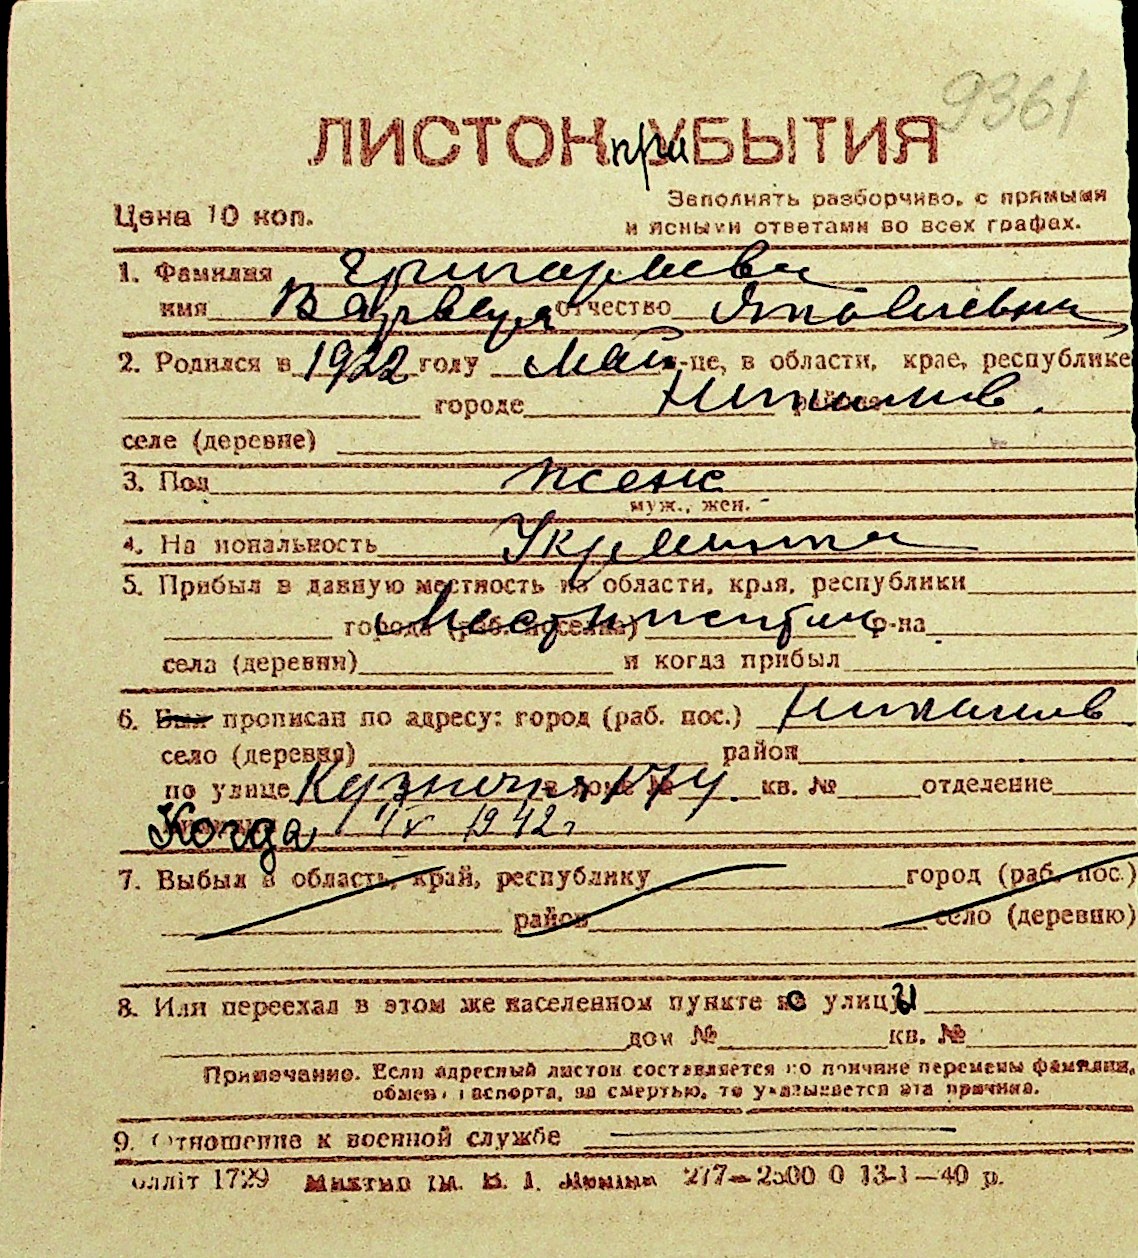 9361
ЛИСТОК при УБЫТИЯ
Цена 10 коп.
Заполнять разборчиво, с прямыми
и ясными ответами во всех графах.
1. Фамилия Григорьева
имя Варвара отчество Яковлевна
2. Родился в 1922 году Май м-це, в области, крае, республике
городе Николаев.
селе (деревне)
3. Пол женс
муж., жен.
4. Национальность Украинка
5. Прибыл в данную местность из области, края, республики
города (раб. поселка) р-на
села (деревни) и когда прибыл
6. Был прописан по адресу: город (раб. пос.) Николаев
село (деревня) район
по улице в доме № кв. № отделение
Когда 1/IV 1942 г
7. Выбыл в область, край, республику город (раб. пос.)
район село (деревню)
8. Или переехал в этом же населенном пункте с улицы
дом № кв. №
Примечание. Если адресный листок составляется по причине перемены фамилии,
обмена паспорта, за смертью, то указывается эта причина.
9. Отношение к военной службе
блліт 1729 ім. В. І. Леніна 277—2500 0 13-1—40 р.